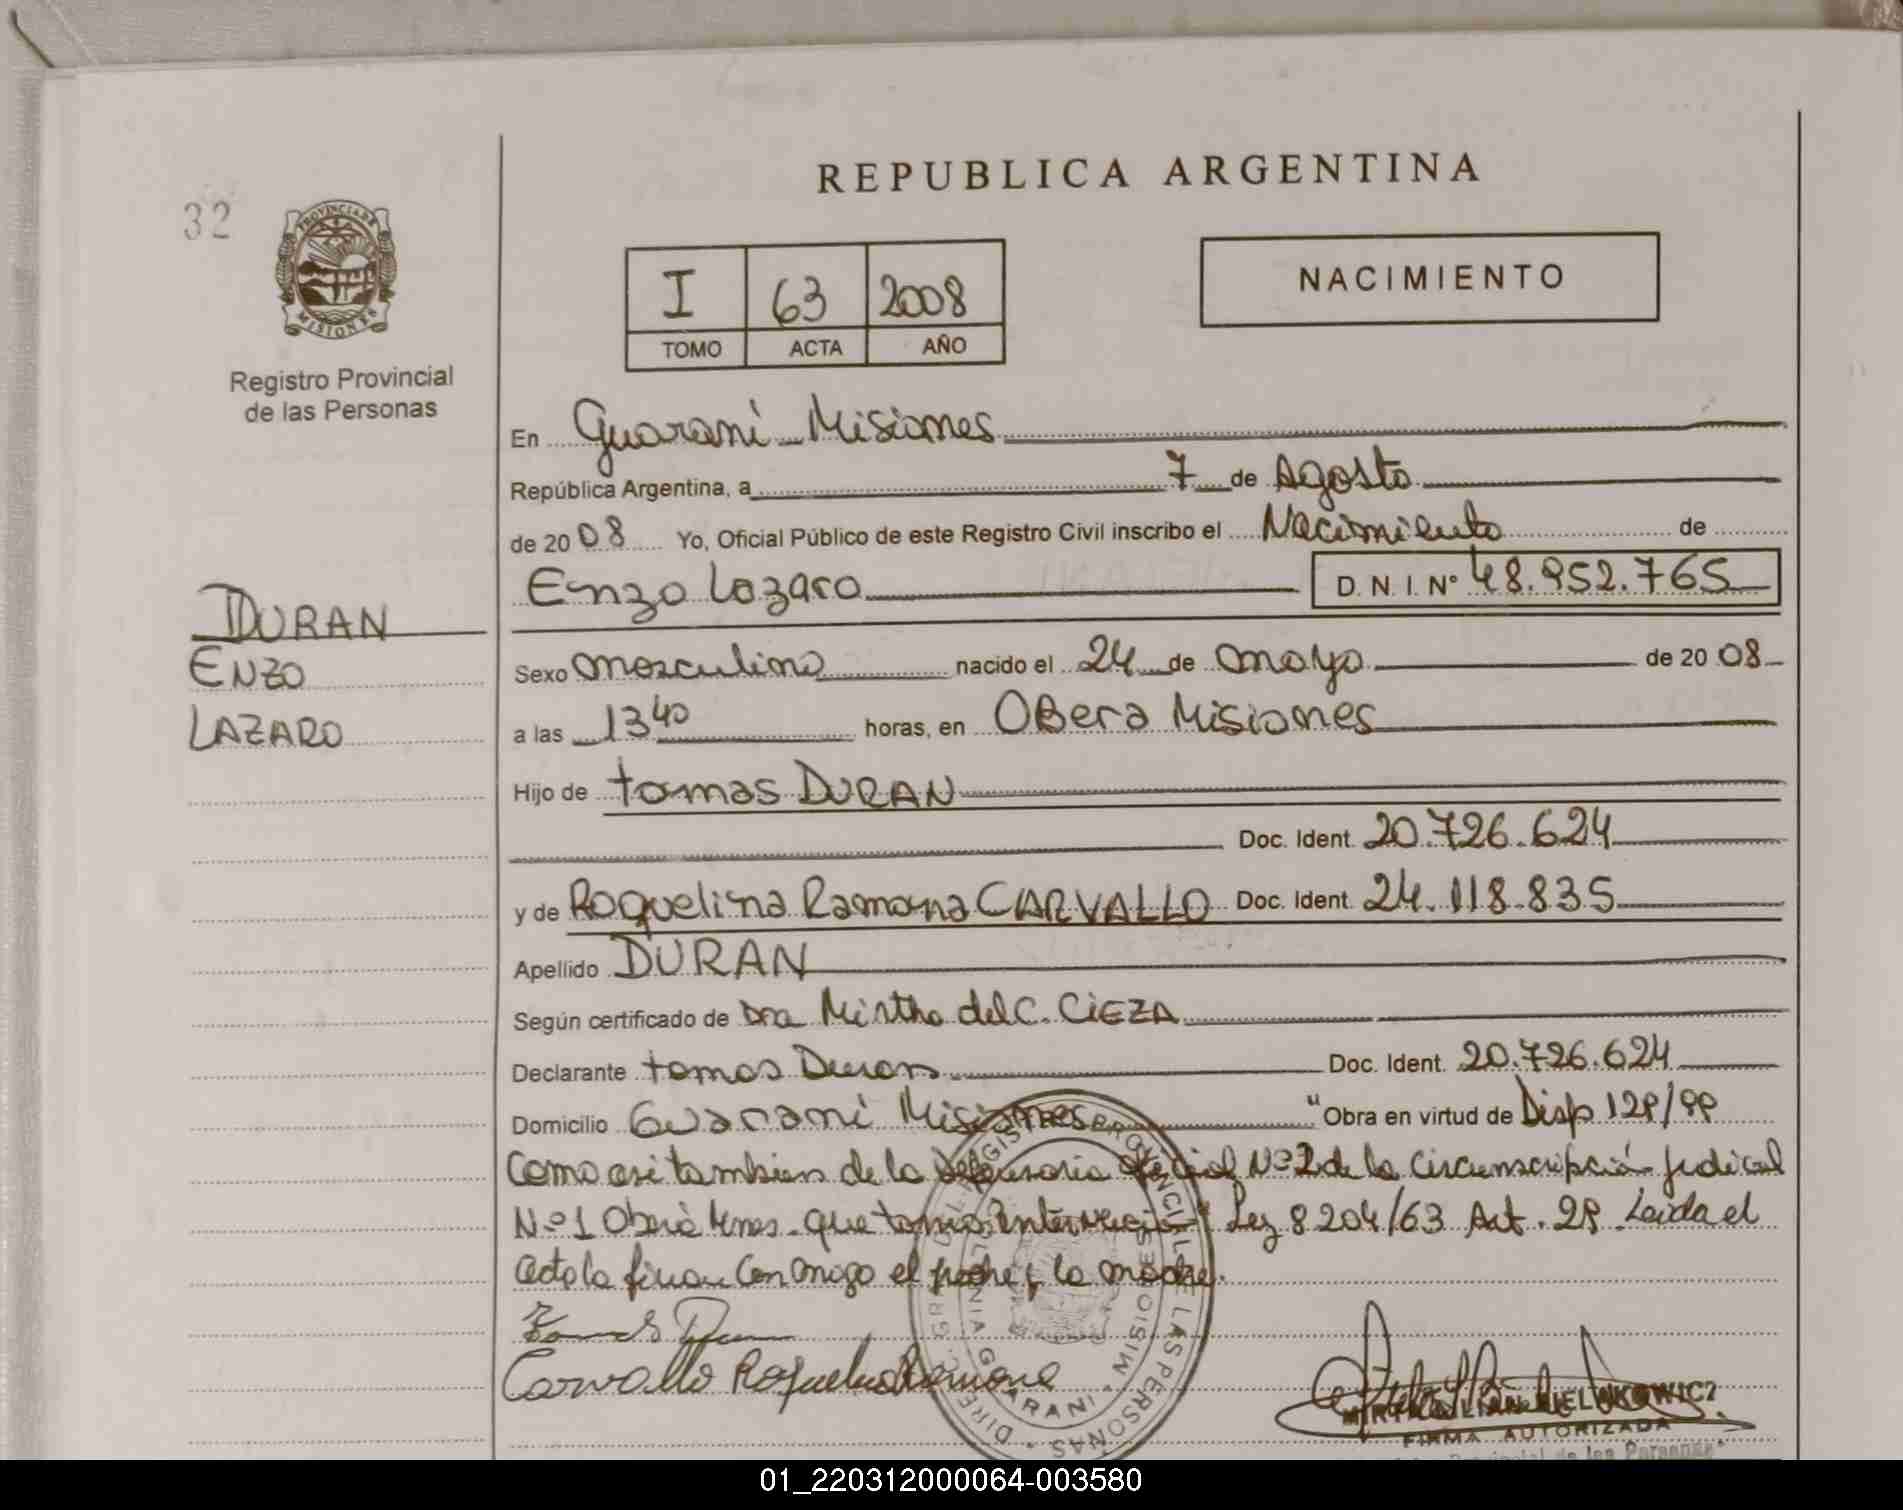 REPUBLICA ARGENTINA
32
PROVINCIA DE
MISIONES
Registro Provincial
de las Personas
I 63 2008
TOMO ACTA AÑO
NACIMIENTO
En Guaraní Misiones
República Argentina, a 7 de Agosto
de 20 08 Yo, Oficial Público de este Registro Civil inscribo el Nacimiento de
Enzo Lazaro D.N.I.Nº 48.952.765
DURAN
ENZO
LAZARO
Sexo masculino nacido el 24 de mayo de 20 08
a las 13 40 horas, en OBera Misiones
Hijo de tomas DURAN
Doc. Ident. 20.726.624
y de Roquelina Ramona CARVALLO Doc. Ident. 24.118.835
Apellido DURAN
Según certificado de Dra Mirtha del C. CIEZA
Declarante tomas Duran Doc. Ident. 20.726.624
Domicilio Guaraní Misiones "Obra en virtud de Disp 129/99
Como asi tambien de la Defensoria Oficial Nº 2 de la Circunscripción Judicial
Nº 1 Oberá Mnes. que tomo Intervención Ley 8204/63 Art. 29. Leida el
acta la firman Con migo el padre y la madre.
Carvallo Roquelina Ramona
GUARANI MISIONES
FIRMA AUTORIZADA
Provincial de las Personas
01_220312000064-003580